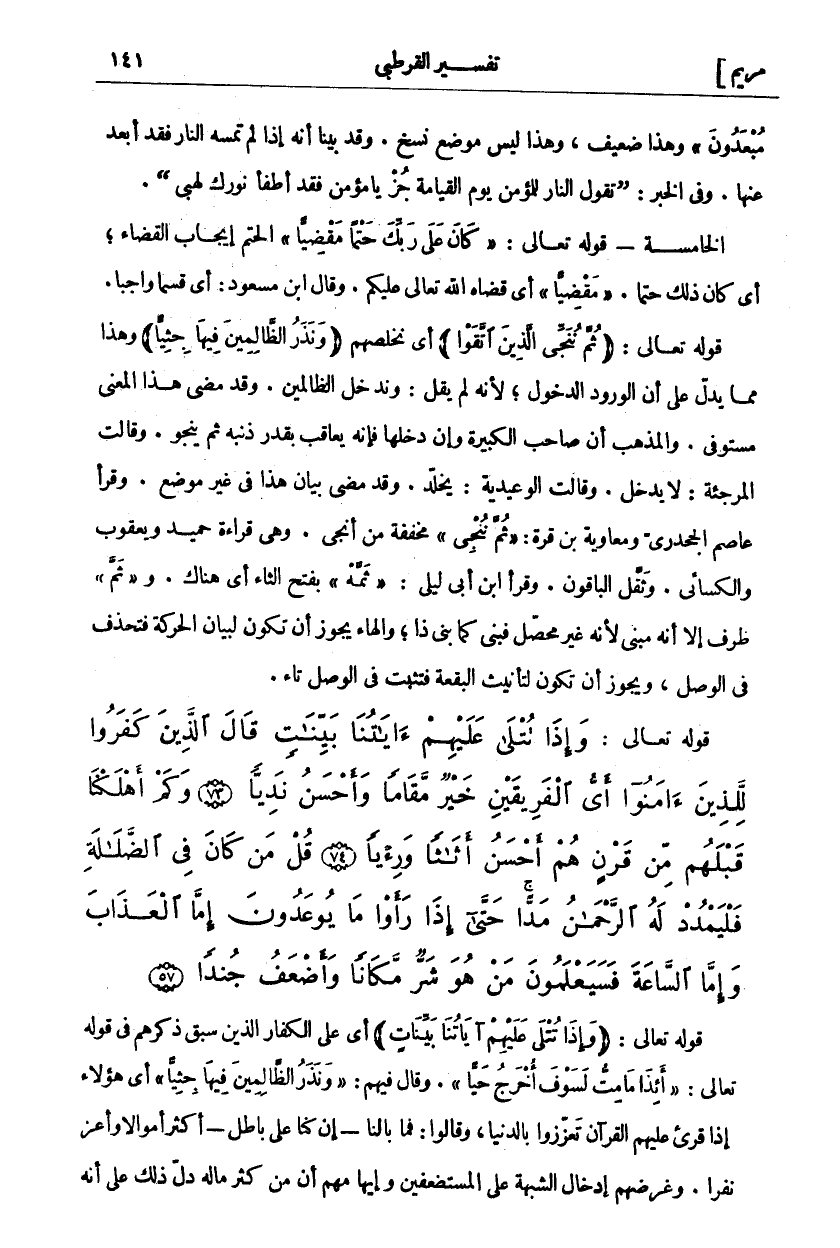 مريم ] تفسـير القرطبي ١٤١
مُبْعَدُونَ » وهذا ضعيف ، وهذا ليس موضع نسخ . وقد بينا أنه إذا لم تمسه النار فقد أبعد
عنها . وفى الخبر : ”تقول النار للؤمن يوم القيامة جُزْ يامؤمن فقد أطفأ نورك لهبى “ .
الخامســة – قوله تعـالى : « كَانَ عَلَى رَبِّكَ حَتْمًا مَقْضِيًّا » الحتم إيجـاب القضاء ؛
أى كان ذلك حتما . « مَقْضِيًّا » أى قضاه الله تعالى عليكم . وقال ابن مسعود : أى قسما واجبا .
قوله تعـالى : ﴿ ثُمَّ نُنَجِّى الَّذِينَ اتَّقَوْا ﴾ أى نخلصهم ﴿ وَنَذَرُ الظَّالِمِينَ فِيهَا جِثِيًّا ﴾ وهذا
ممـا يدلّ على أن الورود الدخول ؛ لأنه لم يقل : وندخل الظالمين . وقد مضى هـذا المعنى
مستوفى . والمذهب أن صاحب الكبيرة وإن دخلها فإنه يعاقب بقدر ذنبه ثم ينجو . وقالت
المرجئة : لا يدخل . وقالت الوعيدية : يخلّد . وقد مضى بيان هذا فى غير موضع . وقرأ
عاصم الجحدرىّ ومعاوية بن قرة : « ثُمَّ نُنْجِى » مخففة من أنجى . وهى قراءة حميـد ويعقوب
والكسائى . وثَقَّل الباقون . وقرأ ابن أبى ليلى : « ثَمَّهْ » بفتح الثاء أى هناك . و « ثَمَّ »
ظرف إلا أنه مبنى لأنه غير محصّل فبنى كما بنى ذا ؛ والهاء يجوز أن تكون لبيان الحركة فتحذف
فى الوصل ، ويجوز أن تكون لتأنيث البقعة فتثبت فى الوصل تاء .
قوله تعـالى : وَإِذَا تُتْلَىٰ عَلَيْهِمْ ءَايَٰتُنَا بَيِّنَٰتٍ قَالَ ٱلَّذِينَ كَفَرُوا
لِلَّذِينَ ءَامَنُوٓا أَىُّ ٱلْفَرِيقَيْنِ خَيْرٌ مَّقَامًا وَأَحْسَنُ نَدِيًّا ﴿٧٣﴾ وَكَمْ أَهْلَكْنَا
قَبْلَهُم مِّن قَرْنٍ هُمْ أَحْسَنُ أَثَٰثًا وَرِءْيًا ﴿٧٤﴾ قُلْ مَن كَانَ فِى ٱلضَّلَٰلَةِ
فَلْيَمْدُدْ لَهُ ٱلرَّحْمَٰنُ مَدًّا ۚ حَتَّىٰٓ إِذَا رَأَوْا مَا يُوعَدُونَ إِمَّا ٱلْعَـذَابَ
وَإِمَّا ٱلسَّاعَةَ فَسَيَعْلَمُونَ مَنْ هُوَ شَرٌّ مَّكَانًا وَأَضْعَفُ جُندًا ﴿٥٧﴾
قوله تعالى : ﴿ وَإِذَا تُتْلَى عَلَيْهِمْ آيَاتُنَا بَيِّنَاتٍ ﴾ أى على الكفار الذين سبق ذكرهم فى قوله
تعالى : « أَئِذَا مَامِتُّ لَسَوْفَ أُخْرَجُ حَيًّا » . وقال فيهم : « وَنَذَرُ الظَّالِمِينَ فِيهَا جِثِيًّا » أى هؤلاء
إذا قرئ عليهم القرآن تَعزّزوا بالدنيا ، وقالوا : فما بالنا – إن كنا على باطل – أكثر أموالا وأعز
نفرا . وغرضهم إدخال الشبهة على المستضعفين و إيهامهم أن من كثر ماله دلّ ذلك على أنه